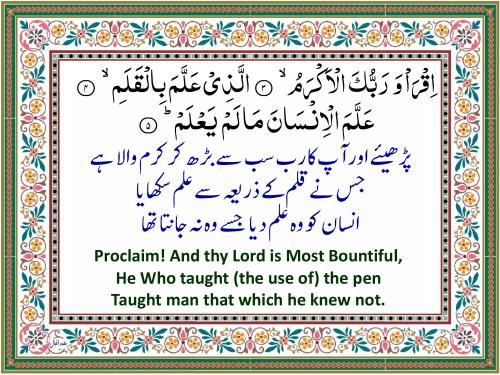 اِقْرَاْ وَ رَبُّكَ الْاَكْرَمُ ۙ ﴿۳﴾ الَّذِیْ عَلَّمَ بِالْقَلَمِ ۙ ﴿۴﴾
عَلَّمَ الْاِنْسَانَ مَا لَمْ یَعْلَمْ ؕ ﴿۵﴾
پڑھیئے اور آپ کا رب سب سے بڑھ کر کرم والا ہے
جس نے قلم کے ذریعہ سے علم سکھایا
انسان کو وہ علم دیا جسے وہ نہ جانتا تھا
Proclaim! And thy Lord is Most Bountiful,
He Who taught (the use of) the pen
Taught man that which he knew not.